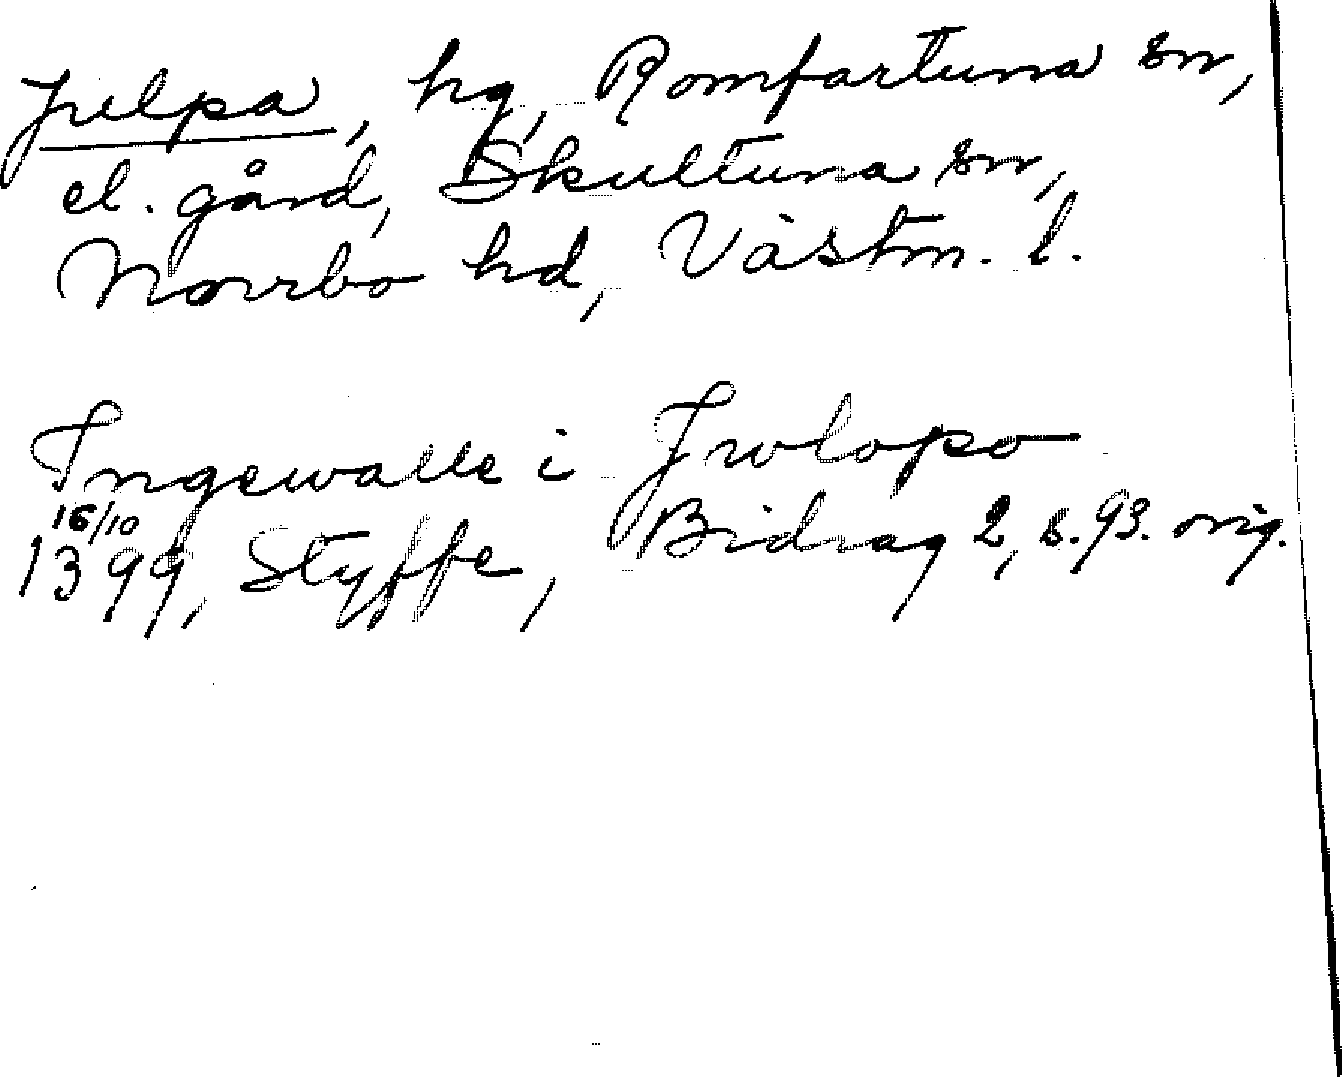 Julpa, hg, Romfartuna sn,
el. gård, Skultuna sn,
Norrbo hd, Västm. l.
Ingewalle i Jwlopo
16/10
1399, Styffe, Bidrag 2, s. 93. orig.